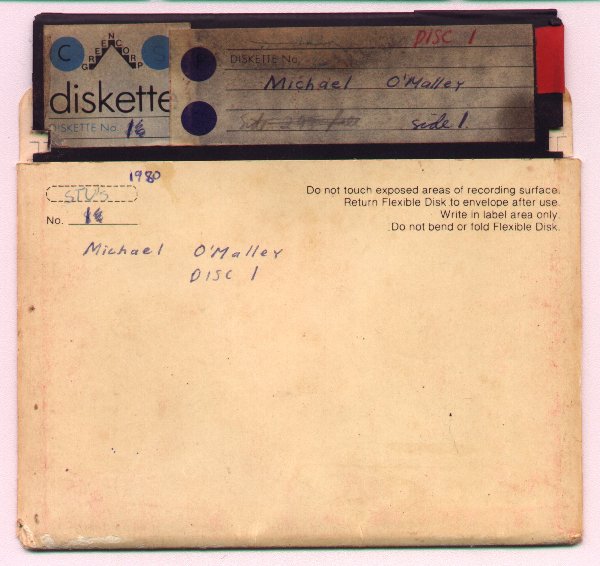 C S
GREENCORP
diskette
DISKETTE No. 1
DISC 1
DISKETTE No.
Michael O'Malley
side 1.
1980
STU'S
No. 1
Michael O'Malley
DISC 1
Do not touch exposed areas of recording surface.
Return Flexible Disk to envelope after use.
Write in label area only.
Do not bend or fold Flexible Disk.